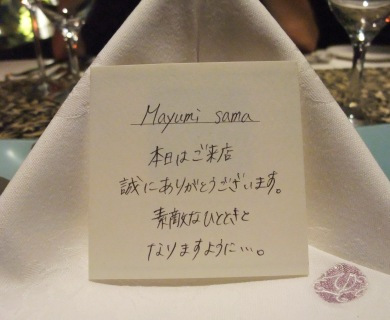 Mayumi sama
本日はご来店
誠にありがとうございます。
素敵なひとときと
なりますように…。